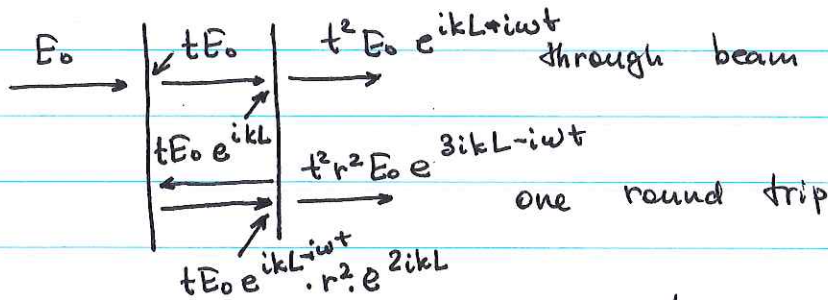 E₀ tE₀ t²E₀ e^{ikL-iωt} through beam
tE₀ e^{ikL}
t²r²E₀ e^{3ikL-iωt} one round trip
tE₀ e^{ikL-iωt} · r² · e^{2ikL}